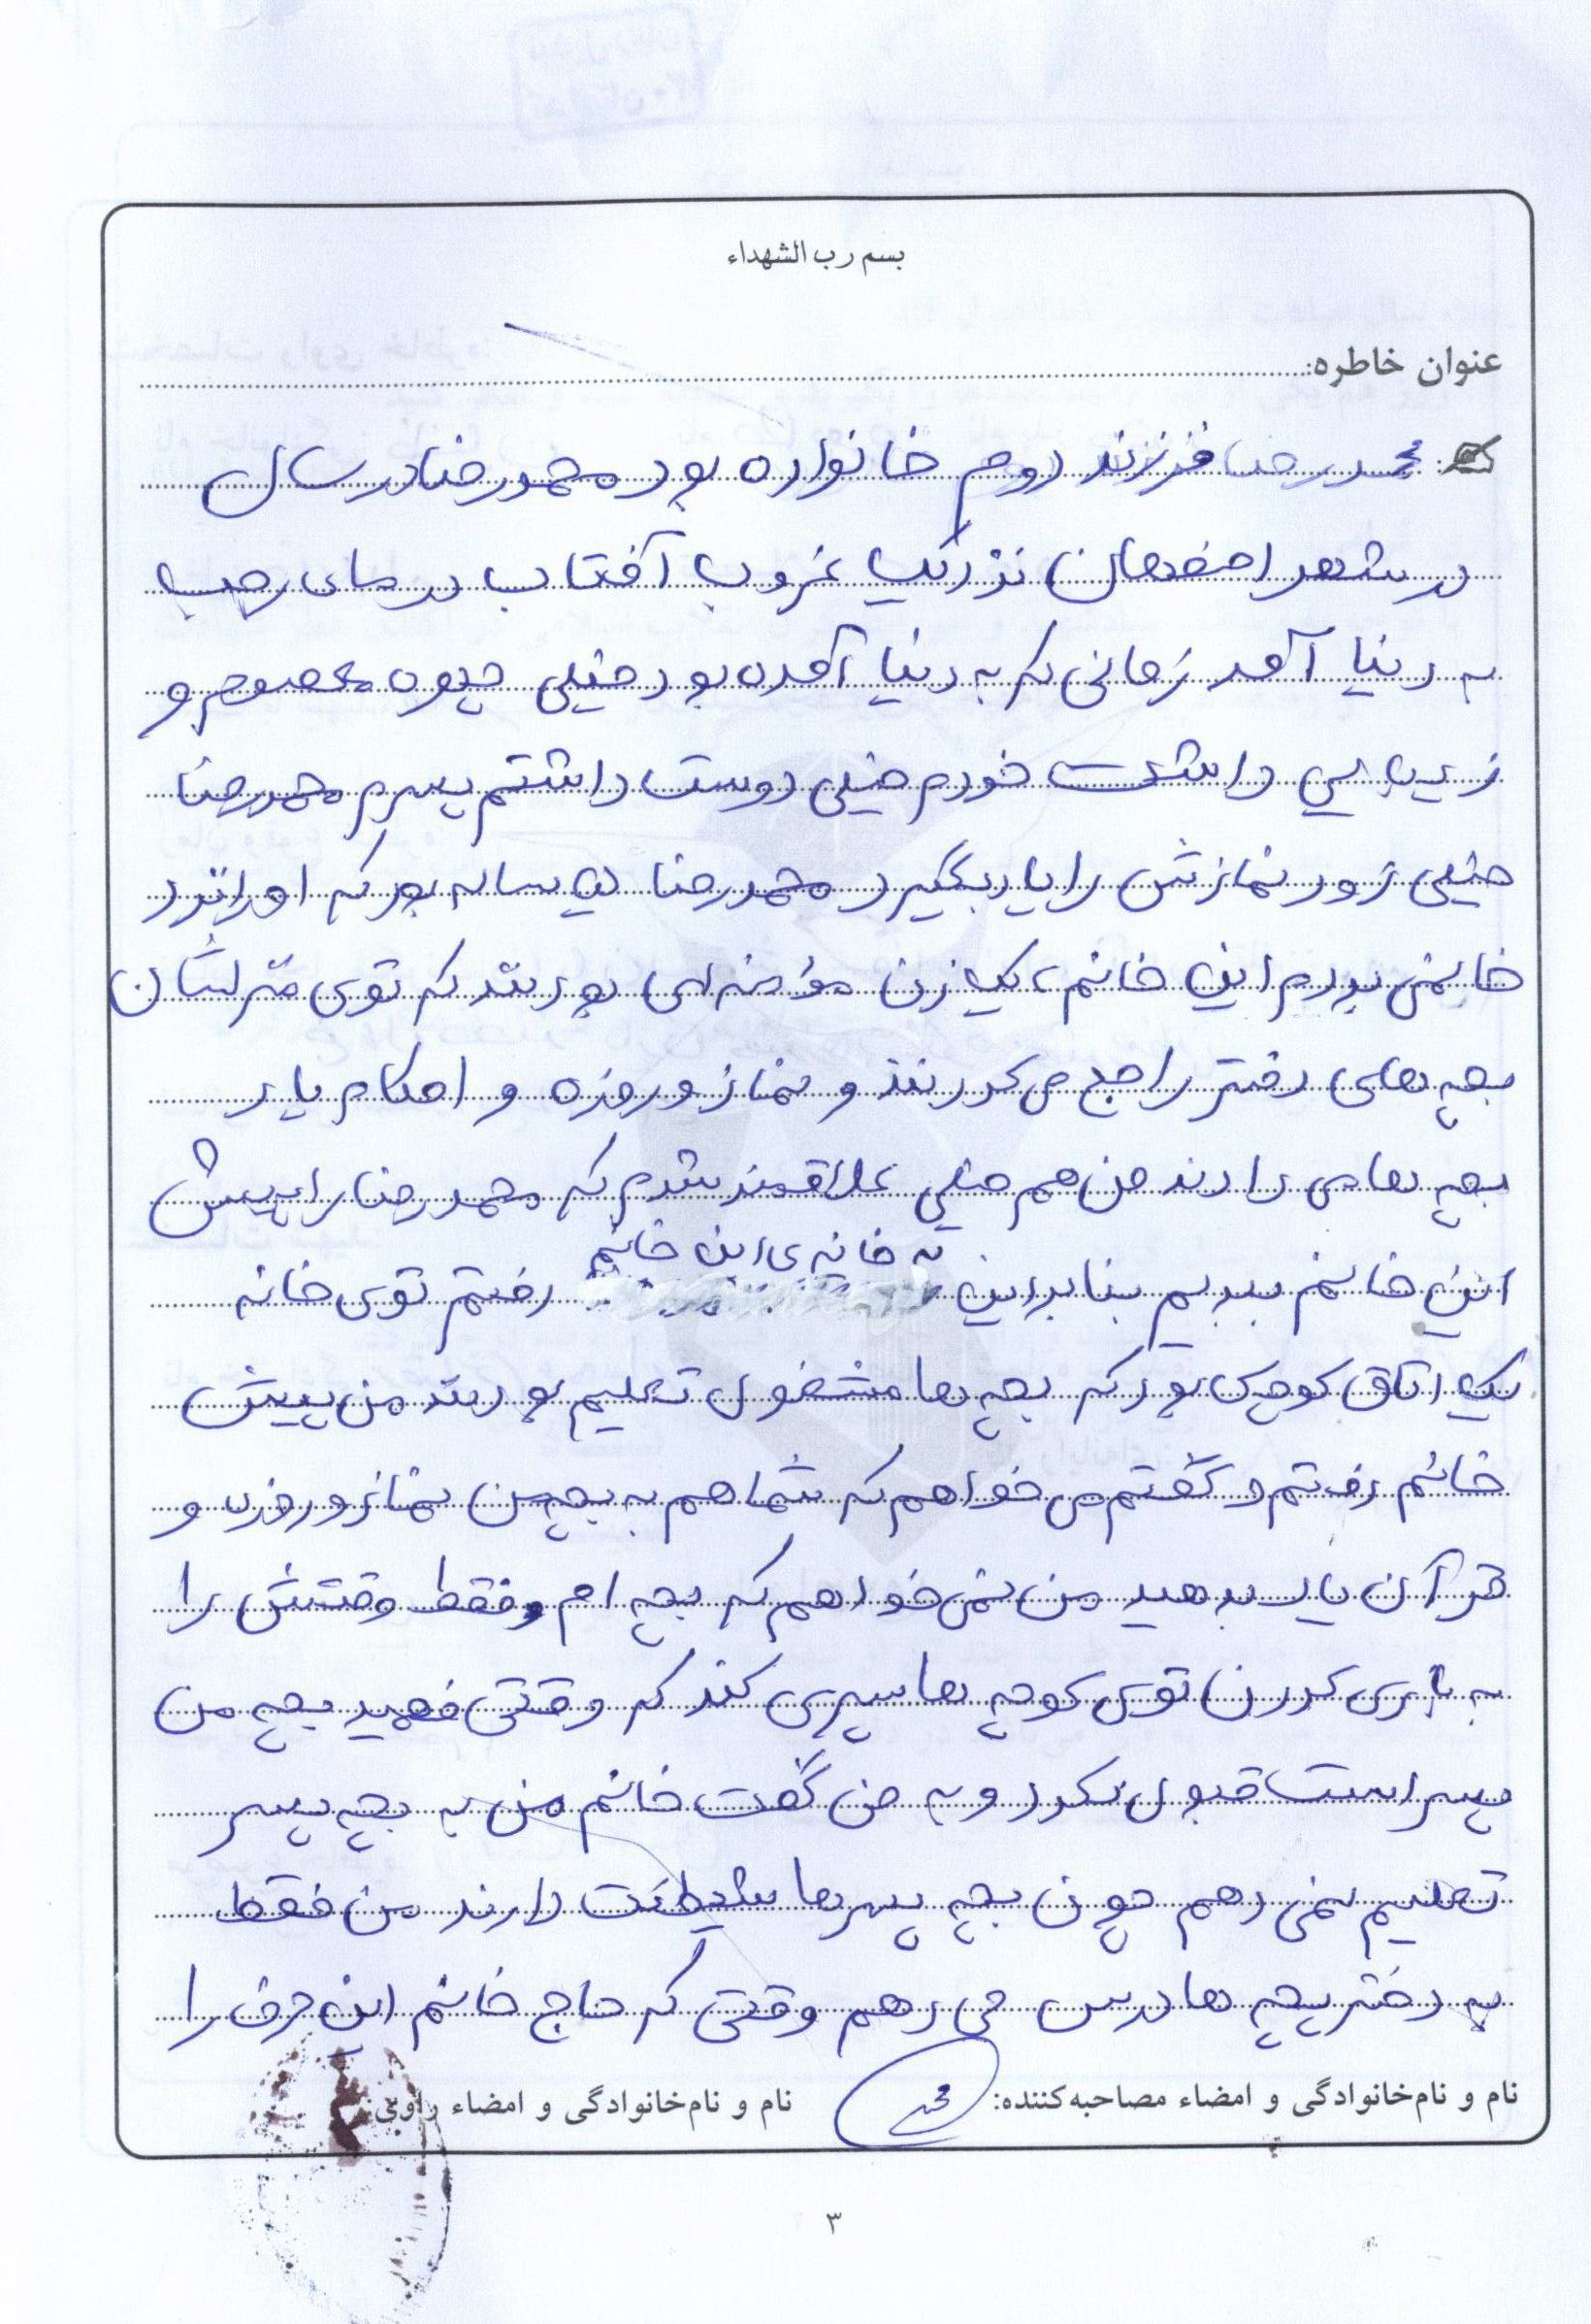 بسم رب الشهداء
عنوان خاطره:
محمدرضا فرزند دوم خانواده بود محمدرضا در سال
در شهر اصفهان نزدیک غروب آفتاب در ماه رجب
به دنیا آمد زمانی که به دنیا آمده بود خیلی چهره معصوم و
زیبایی داشت خودم خیلی دوست داشتم پسرم محمدرضا
خیلی زود نمازش را یاد بگیرد محمدرضا ساله بود که او را نزد
خانمی بردم این خانم، یک زن مؤمنه‌ای بودند که توی منزلشان
بچه‌های دختر را جمع می‌کردند و نماز و روزه و احکام یاد
بچه‌ها می‌دادند من هم خیلی علاقمند شدم که محمدرضا را پیش
این خانم ببریم بنابراین به خانه‌ی این خانم رفتم توی خانه
یک اتاق کوچک بود که بچه‌ها مشغول تعلیم بودند من پیش
خانم رفتم و گفتم می‌خواهم که شما هم به بچه‌من نماز و روزه و
قرآن یاد بدهید من نمی‌خواهم که بچه‌ام فقط وقتش را
به بازی کردن توی کوچه‌ها سپری کند که وقتی فهمید بچه من
پسر است قبول نکرد و به من گفت خانم من به بچه پسر
تعلیم نمی‌دهم چون بچه پسرها شیطنت دارند من فقط
به دختر بچه‌ها درس می‌دهم وقتی که حاج خانم این حرف را
نام و نام‌خانوادگی و امضاء مصاحبه‌کننده: نام و نام‌خانوادگی و امضاء راوی:
۳